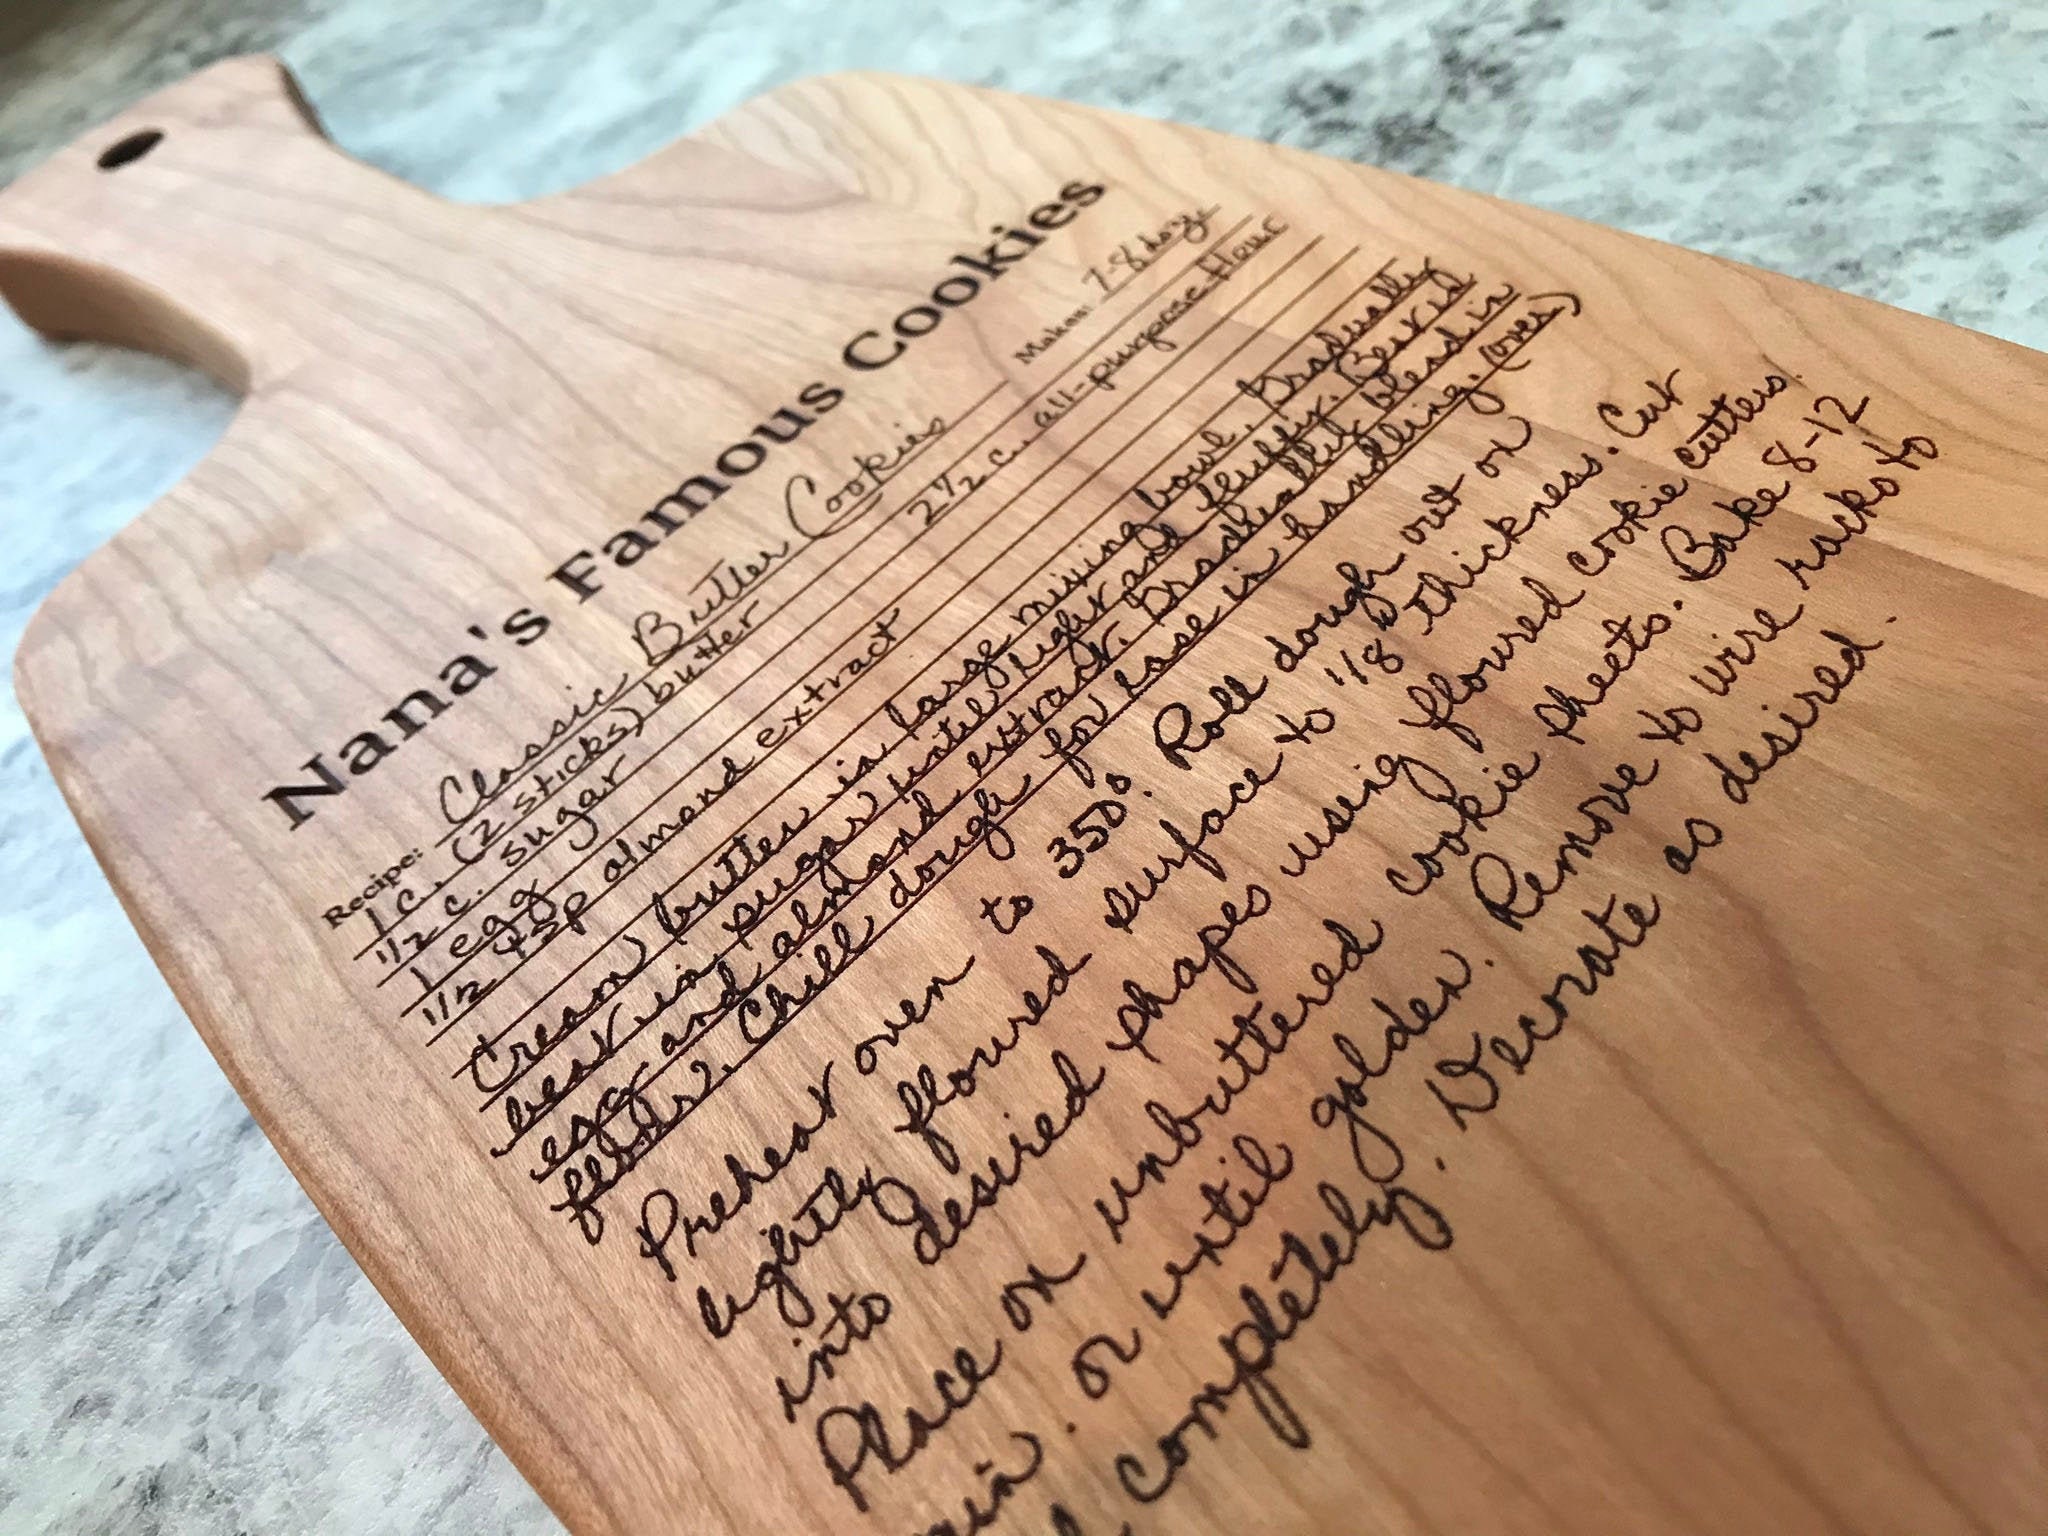 Nana's Famous Cookies
Recipe: Classic Butter Cookies Makes: 7-8 doz.
1 c. (2 sticks) butter 2 1/2 c. all-purpose flour
1/2 c. sugar
1 egg
1/2 tsp almond extract
Cream butter in large mixing bowl. Gradually
beat in sugar until light and fluffy. Beat in
egg and almond extract. Gradually blend in
flour. Chill dough for ease in handling. (over)
Preheat oven to 350°. Roll dough out on
lightly floured surface to 1/8" thickness. Cut
into desired shapes using floured cookie cutters.
Place on unbuttered cookie sheets. Bake 8-12
min. or until golden. Remove to wire racks to
completely. Decorate as desired.